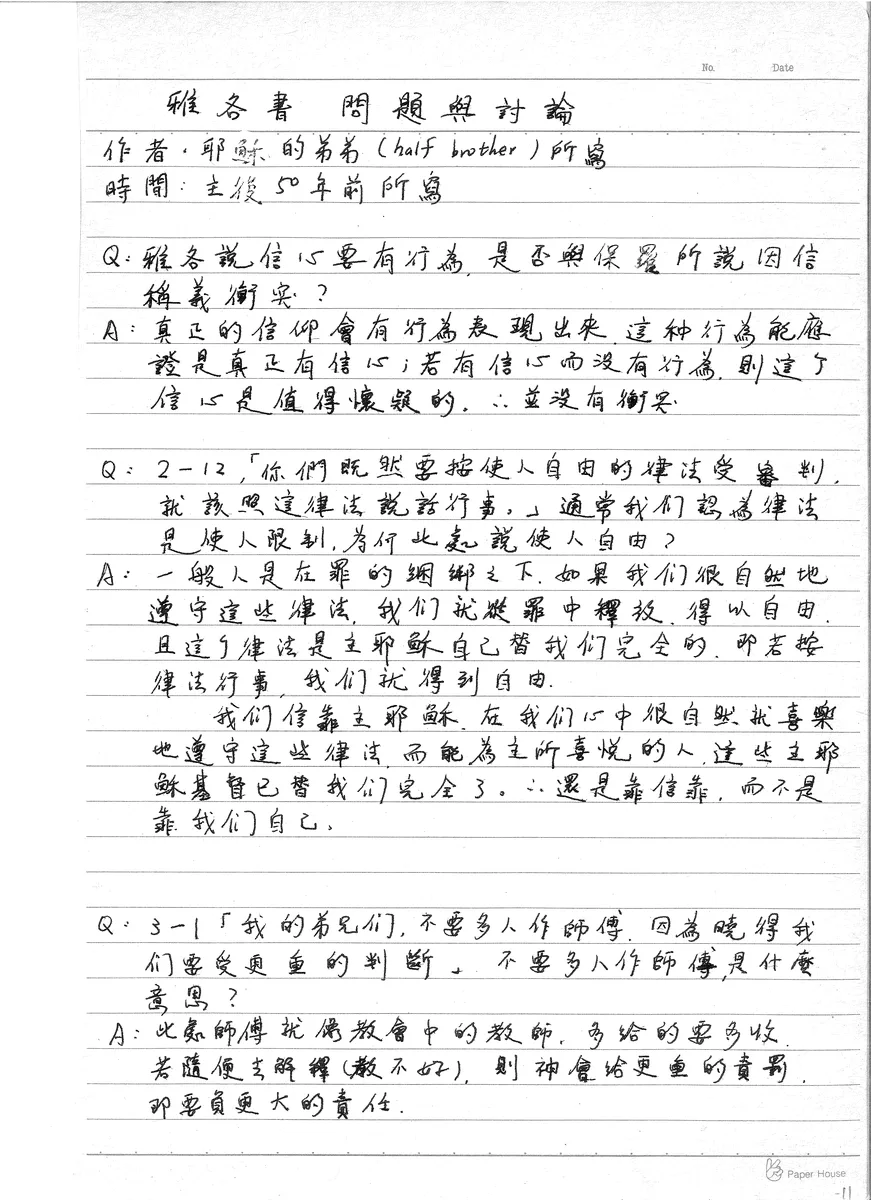 No. Date
雅各書 問題與討論
作者.耶穌的弟弟(half brother)所寫
時間:主後50年前所寫
Q:雅各說信心要有行為,是否與保羅所說因信
稱義衝突?
A:真正的信仰會有行為表現出來,這种行為能應
證是真正有信心;若有信心而没有行為,則這个
信心是值得懷疑的。∴並没有衝突
Q:2-12,「你們既然要按使人自由的律法受審判,
就該照這律法說話行事。」通常我们認為律法
是使人限制,為何此處說使人自由?
A:一般人是在罪的綑綁之下.如果我们很自然地
遵守這些律法,我们就從罪中釋放,得以自由.
且這个律法是主耶穌自己替我们完全的.即若按
律法行事,我们就得到自由.
我们信靠主耶穌.在我们心中很自然就喜樂
地遵守這些律法,而能為主所喜悅的人,這些主耶
穌基督已替我们完全了。∴還是靠信靠,而不是
靠我们自己.
Q:3-1「我的弟兄们,不要多人作師傅.因為曉得我
们要受更重的判斷」 不要多人作師傅,是什麼
意思?
A:此處師傅就像教會中的教師.多給的要多收.
若隨便去解釋(教不好),則神會給更重的責罰.
即要負更大的責任.
Paper House
-11